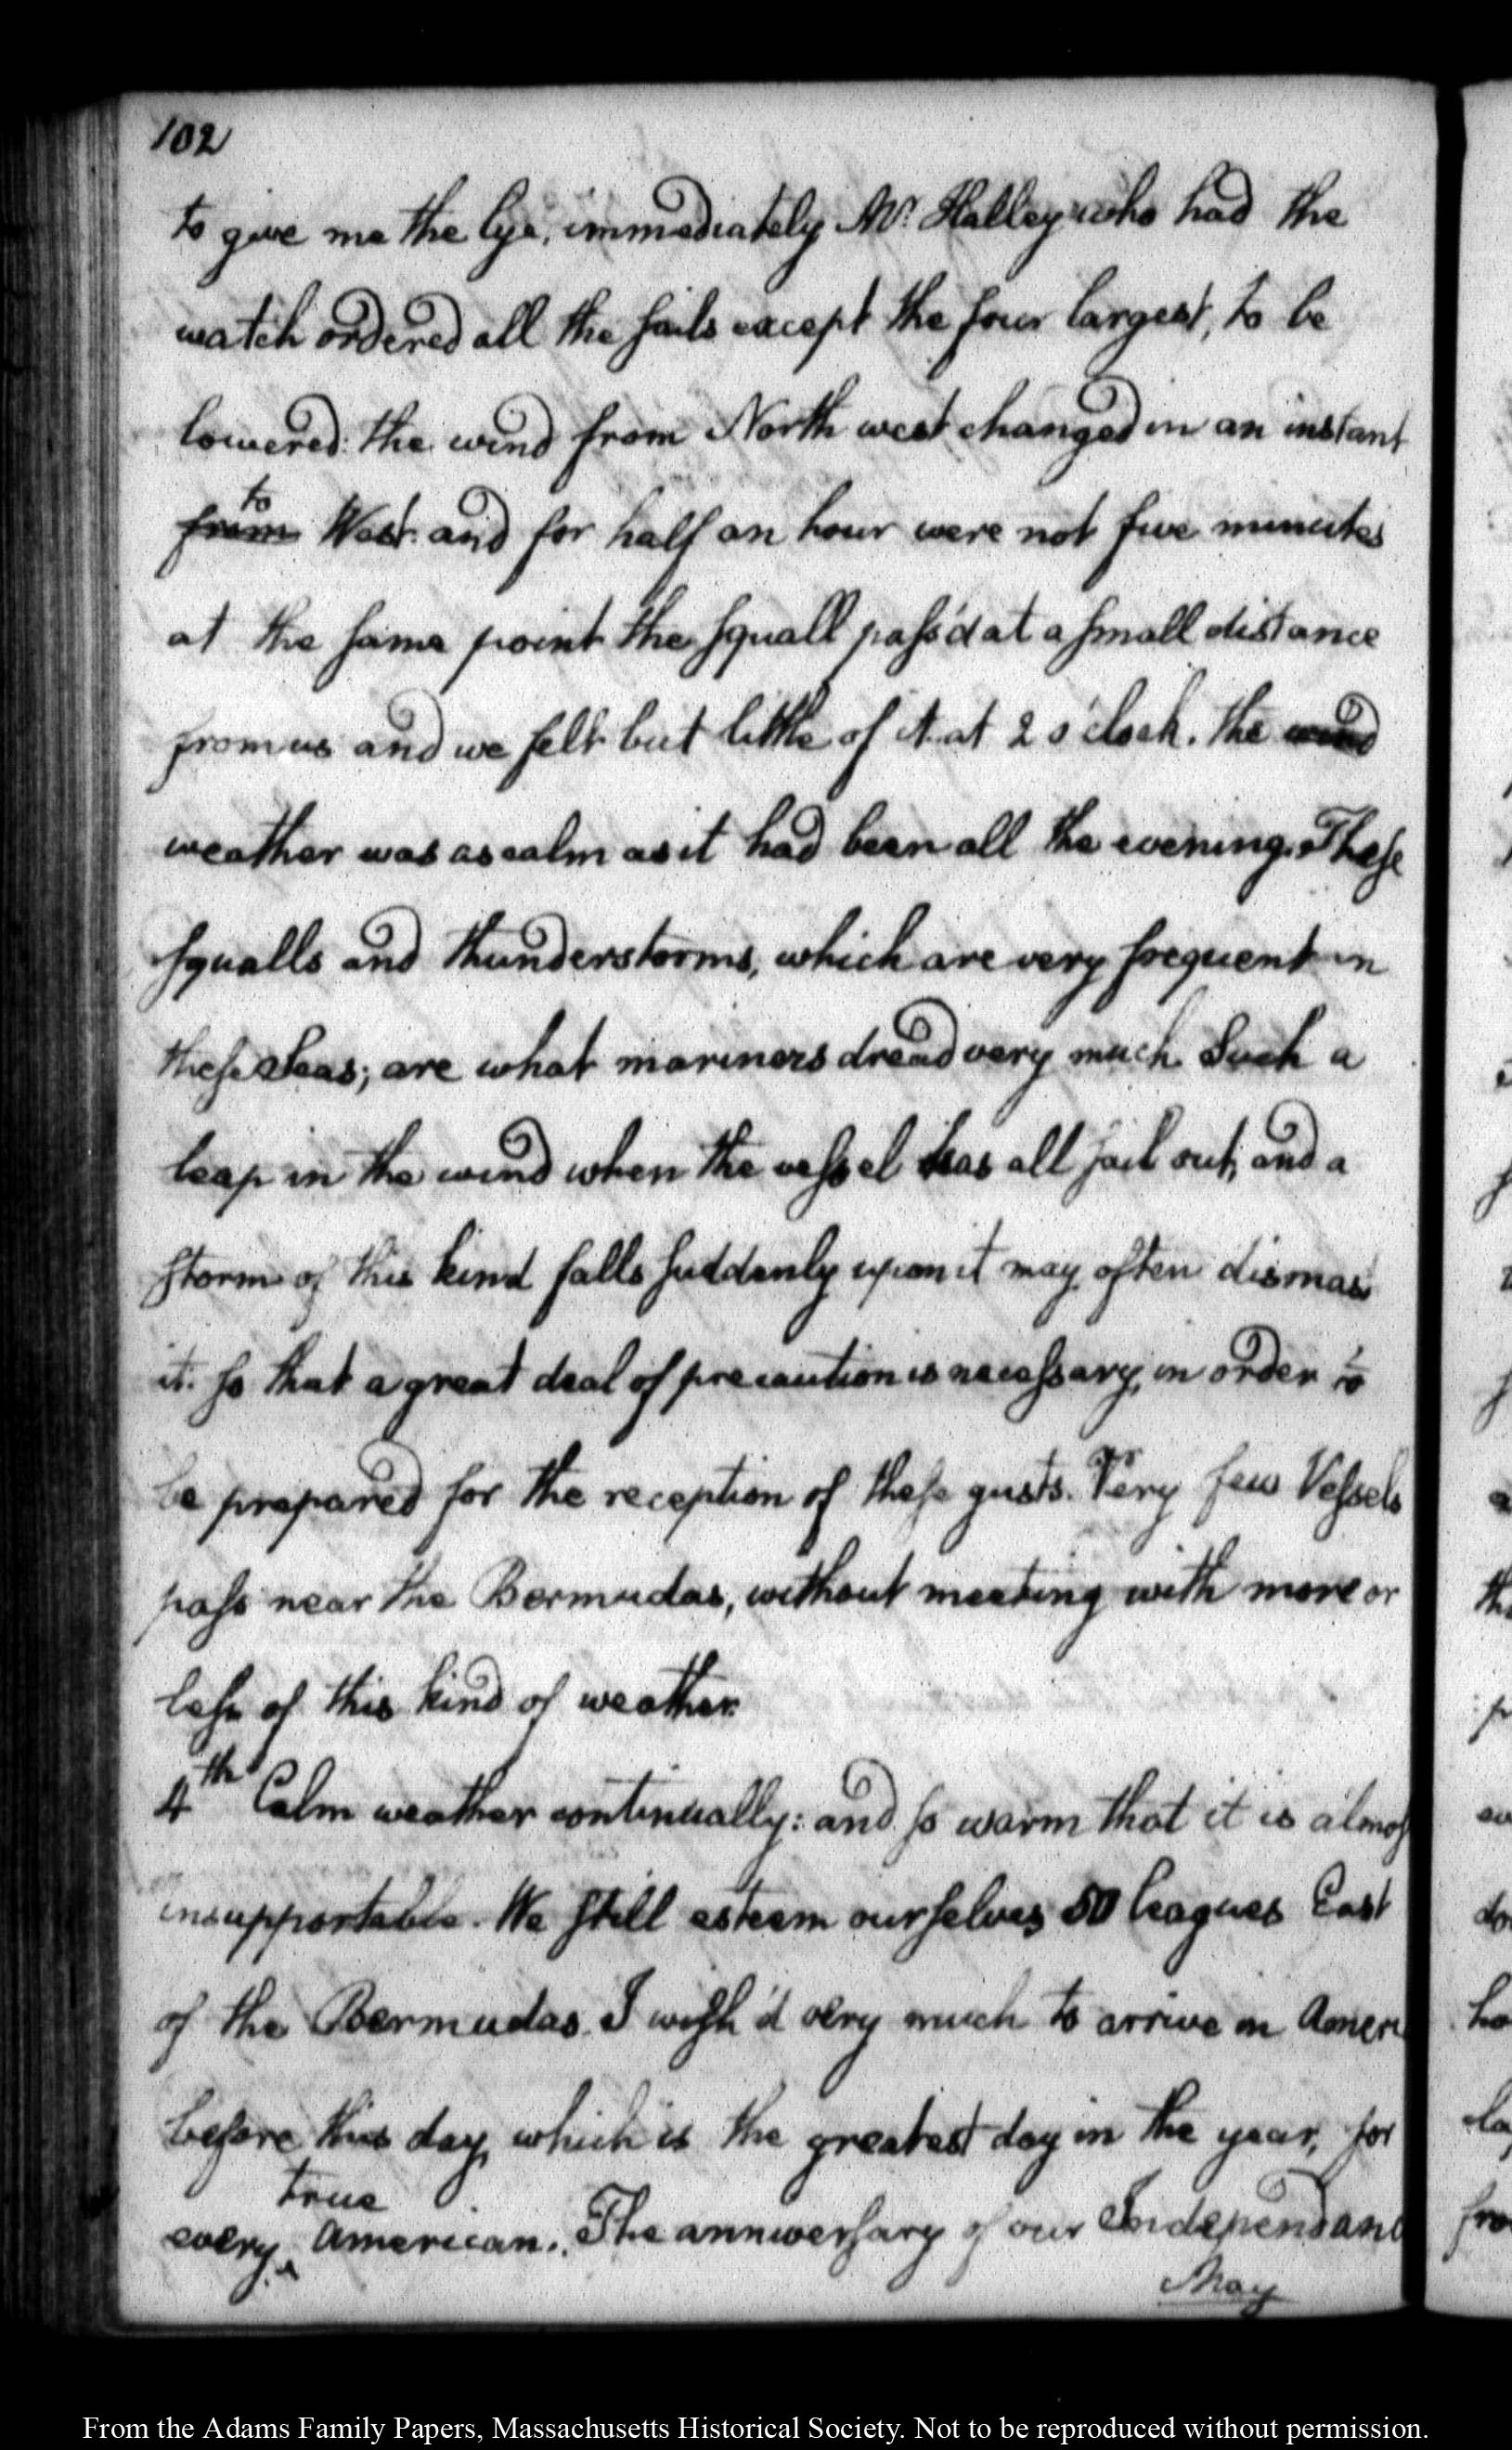 102
to give me the lye, immediately Mr. Halley who had the
watch ordered all the sails except the four largest, to be
lowered: the wind from North west changed in an instant
to
from West. and for half an hour were not five minutes
at the same point the squall pass'd at a small distance
from us and we felt but little of it. at 2 o'clock. the wind
weather was as calm as it had been all the evening. These
squalls and thunderstorms, which are very frequent in
these Seas; are what mariners dread very much. Such a
leap in the wind when the vessel has all sail out, and a
storm of this kind falls suddenly upon it may often dismast
it. so that a great deal of precaution is necessary, in order to
be prepared for the reception of these gusts. Very few Vessels
pass near the Bermudas, without meeting with more or
less of this kind of weather.
4th Calm weather continually: and so warm that it is almos
insupportable. We still esteem ourselves 50 leagues East
of the Bermudas. I wish'd very much to arrive in Ameri
before this day, which is the greatest day in the year, for
true
every American. The anniversary of our Independanc
May
From the Adams Family Papers, Massachusetts Historical Society. Not to be reproduced without permission.